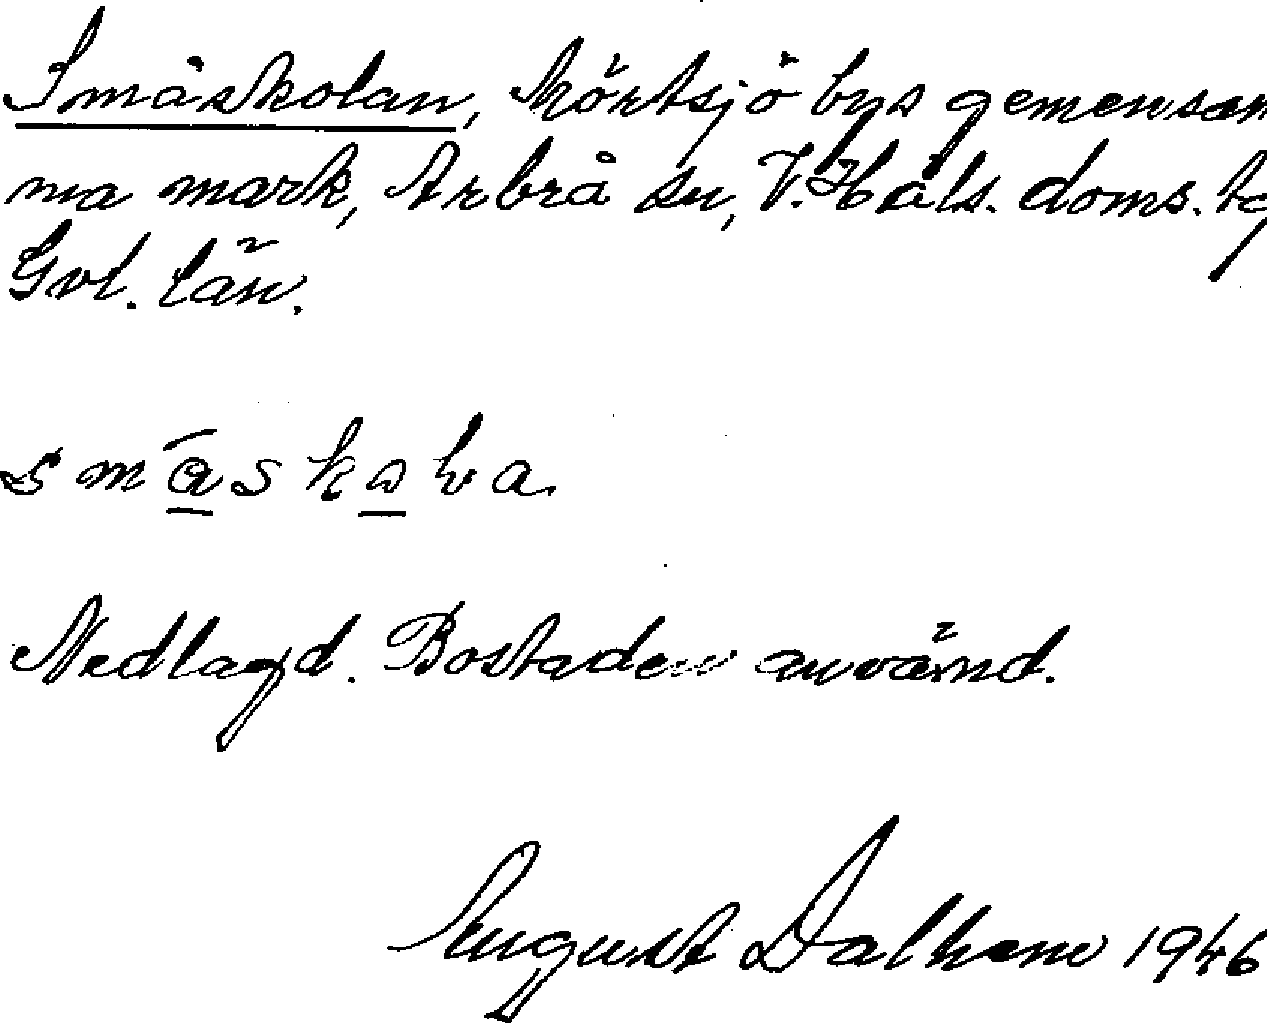 Småskolan, Mörtsjö bys gemensam
ma mark, Arbrå sn, V. Häls. doms. tg
Gvl. län.
småskɷla.
Nedlagd. Bostaden använd.
August Dalhem 1946